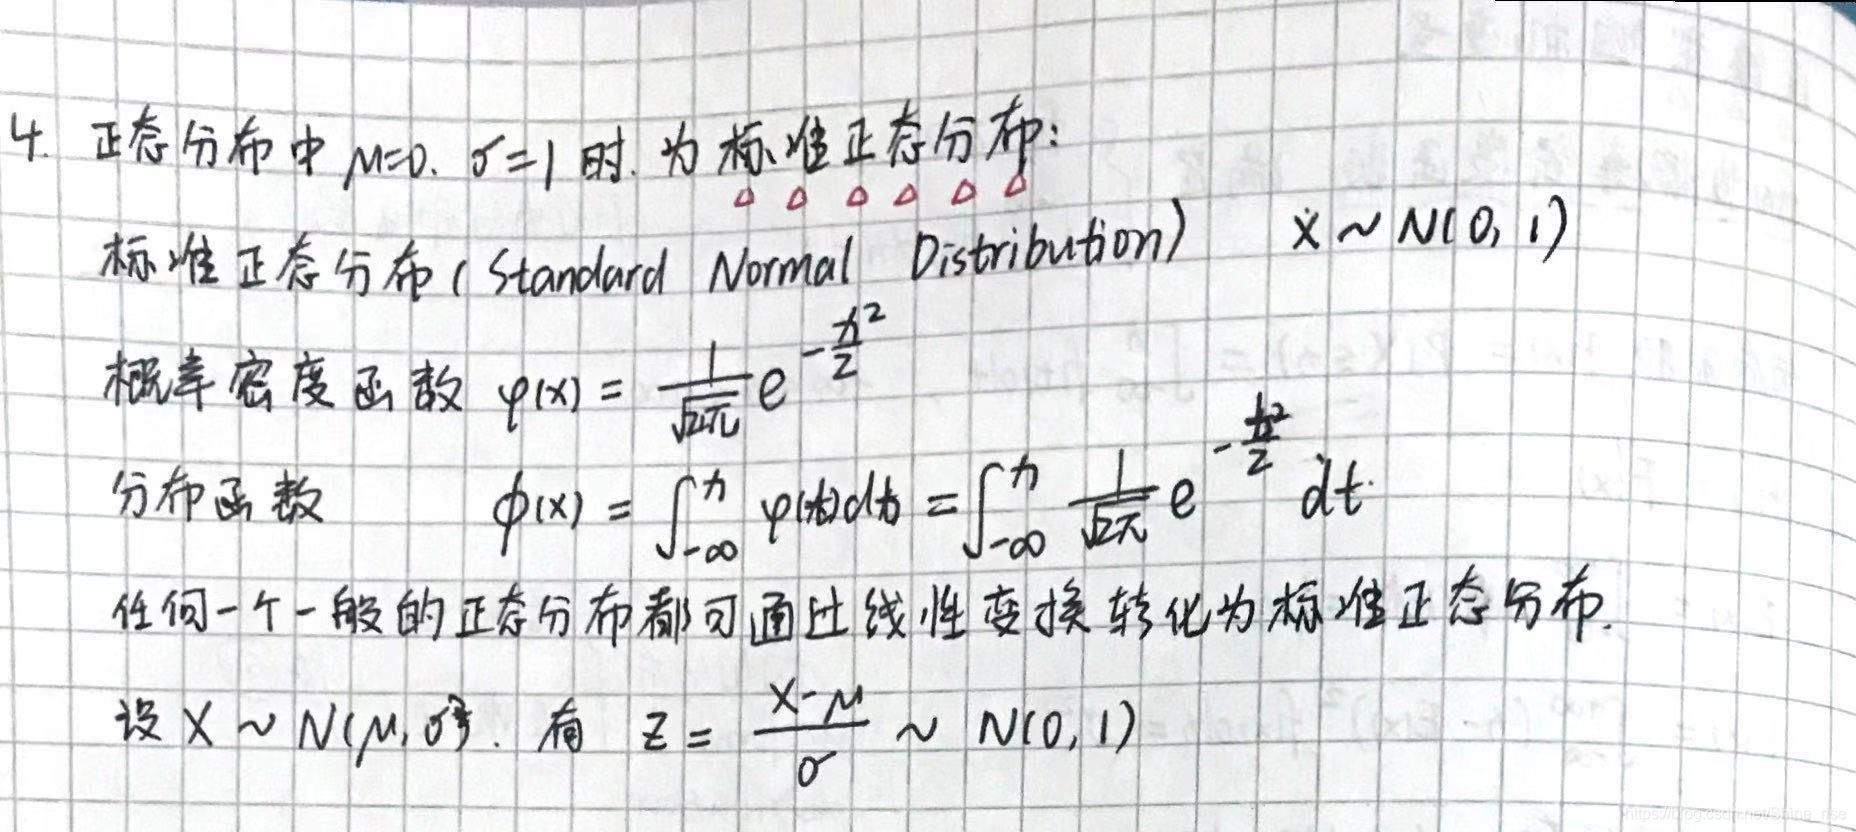 4. 正态分布中 μ=0. σ=1 时. 为标准正态分布:
标准正态分布 (Standard Normal Distribution) X ~ N(0, 1)
概率密度函数 φ(x) = \frac{1}{\sqrt{2π}} e^{-\frac{x^2}{2}}
分布函数 ϕ(x) = \int_{-∞}^{x} φ(t)dt = \int_{-∞}^{x} \frac{1}{\sqrt{2π}} e^{-\frac{t^2}{2}} dt.
任何一个一般的正态分布都可通过线性变换转化为标准正态分布.
设 X ~ N(μ, σ²). 有 Z = \frac{X-μ}{σ} ~ N(0, 1)